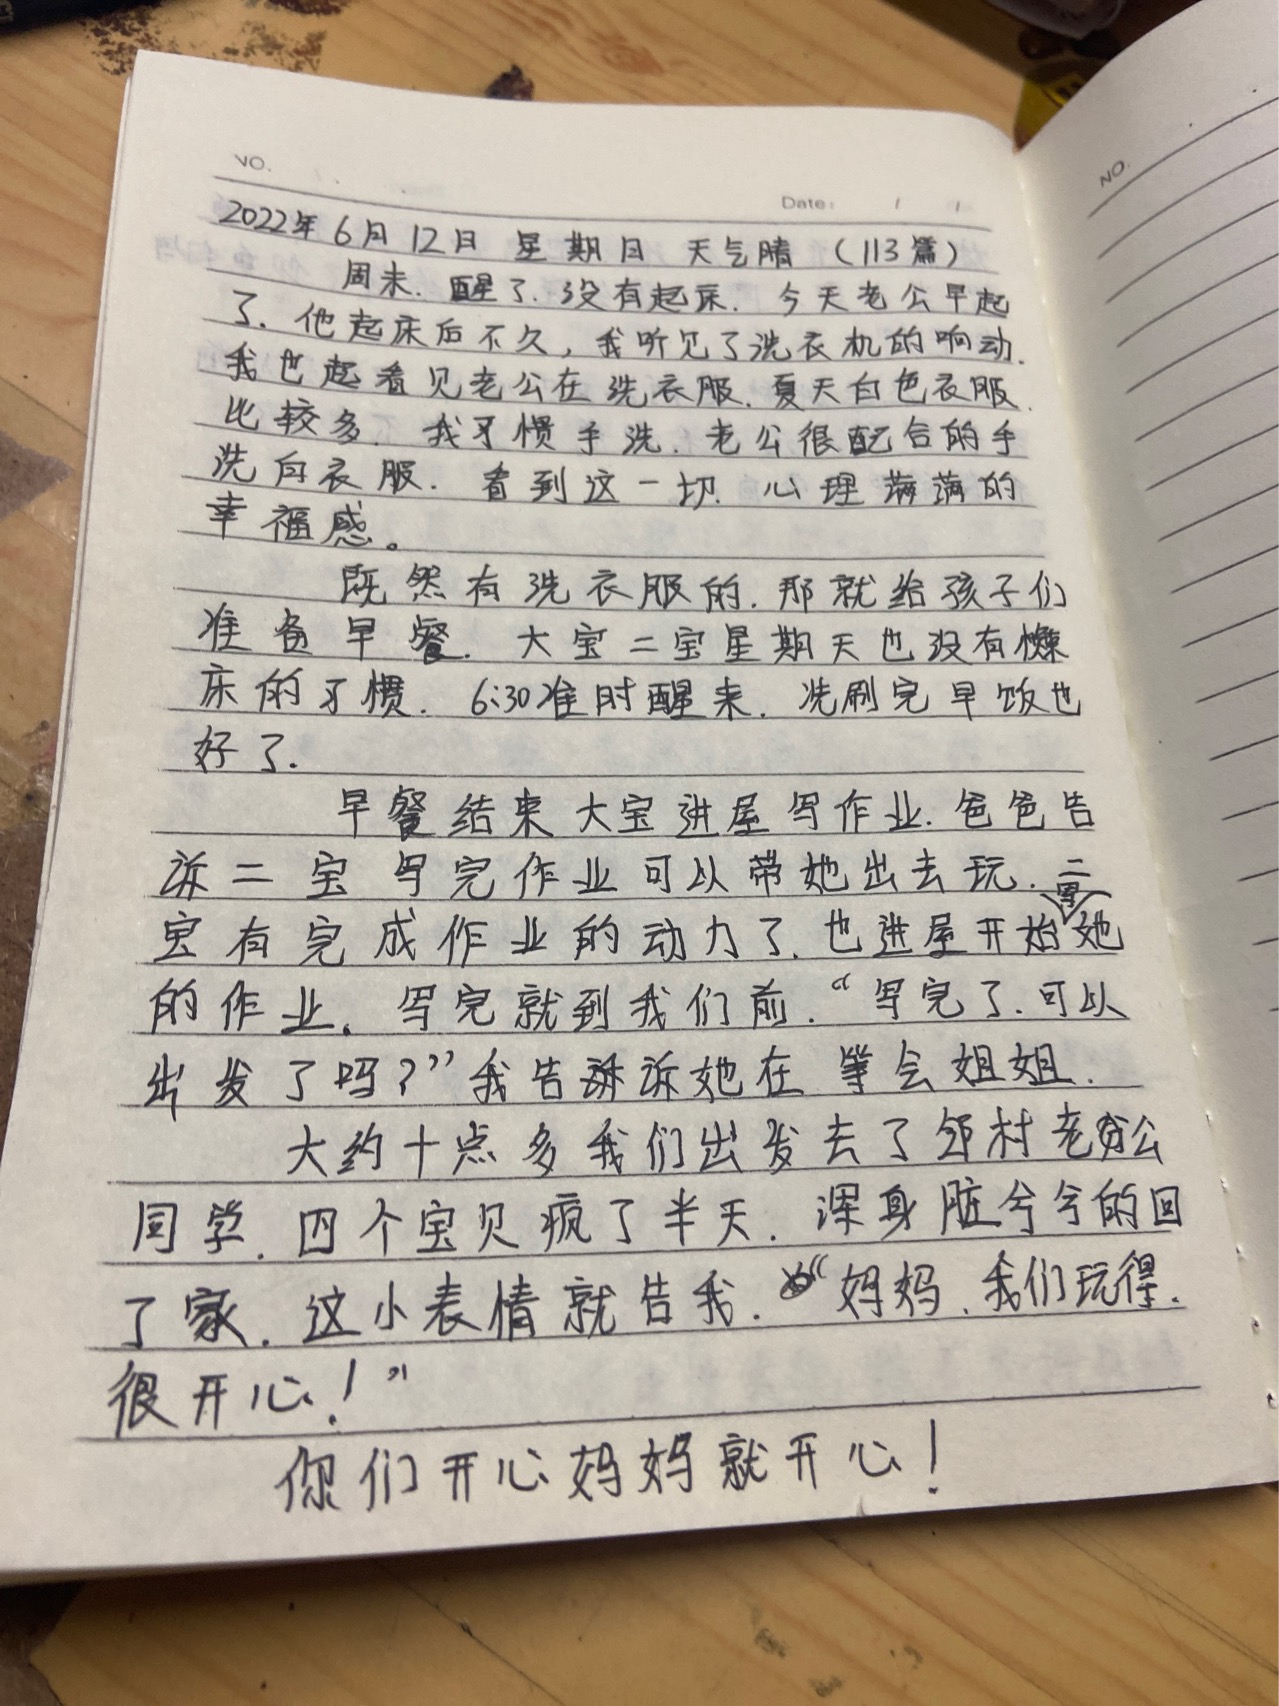 NO.
Date: / /
2022年6月12日 星期日 天气晴 (113篇)
周末.醒了.没有起床.今天老公早起
了.他起床后不久,我听见了洗衣机的响动.
我也起看见老公在洗衣服.夏天白色衣服.
比较多.我习惯手洗.老公很配合的手
洗白衣服.看到这一切.心理满满的
幸福感。
既然有洗衣服的.那就给孩子们
准备早餐.大宝二宝星期天也没有懒
床的习惯.6:30准时醒来.洗刷完早饭也
好了.
早餐结束大宝进屋写作业.爸爸告
诉二宝写完作业可以带她出去玩.二
宝有完成作业的动力了.也进屋开始写她
的作业.写完就到我们前.“写完了.可以
出发了吗?”我告诉她在等会姐姐.
大约十点多我们出发去了邻村老公
同学.四个宝贝疯了半天.浑身脏兮兮的回
了家.这小表情就告我.“妈妈.我们玩得.
很开心!”
你们开心妈妈就开心!
NO.